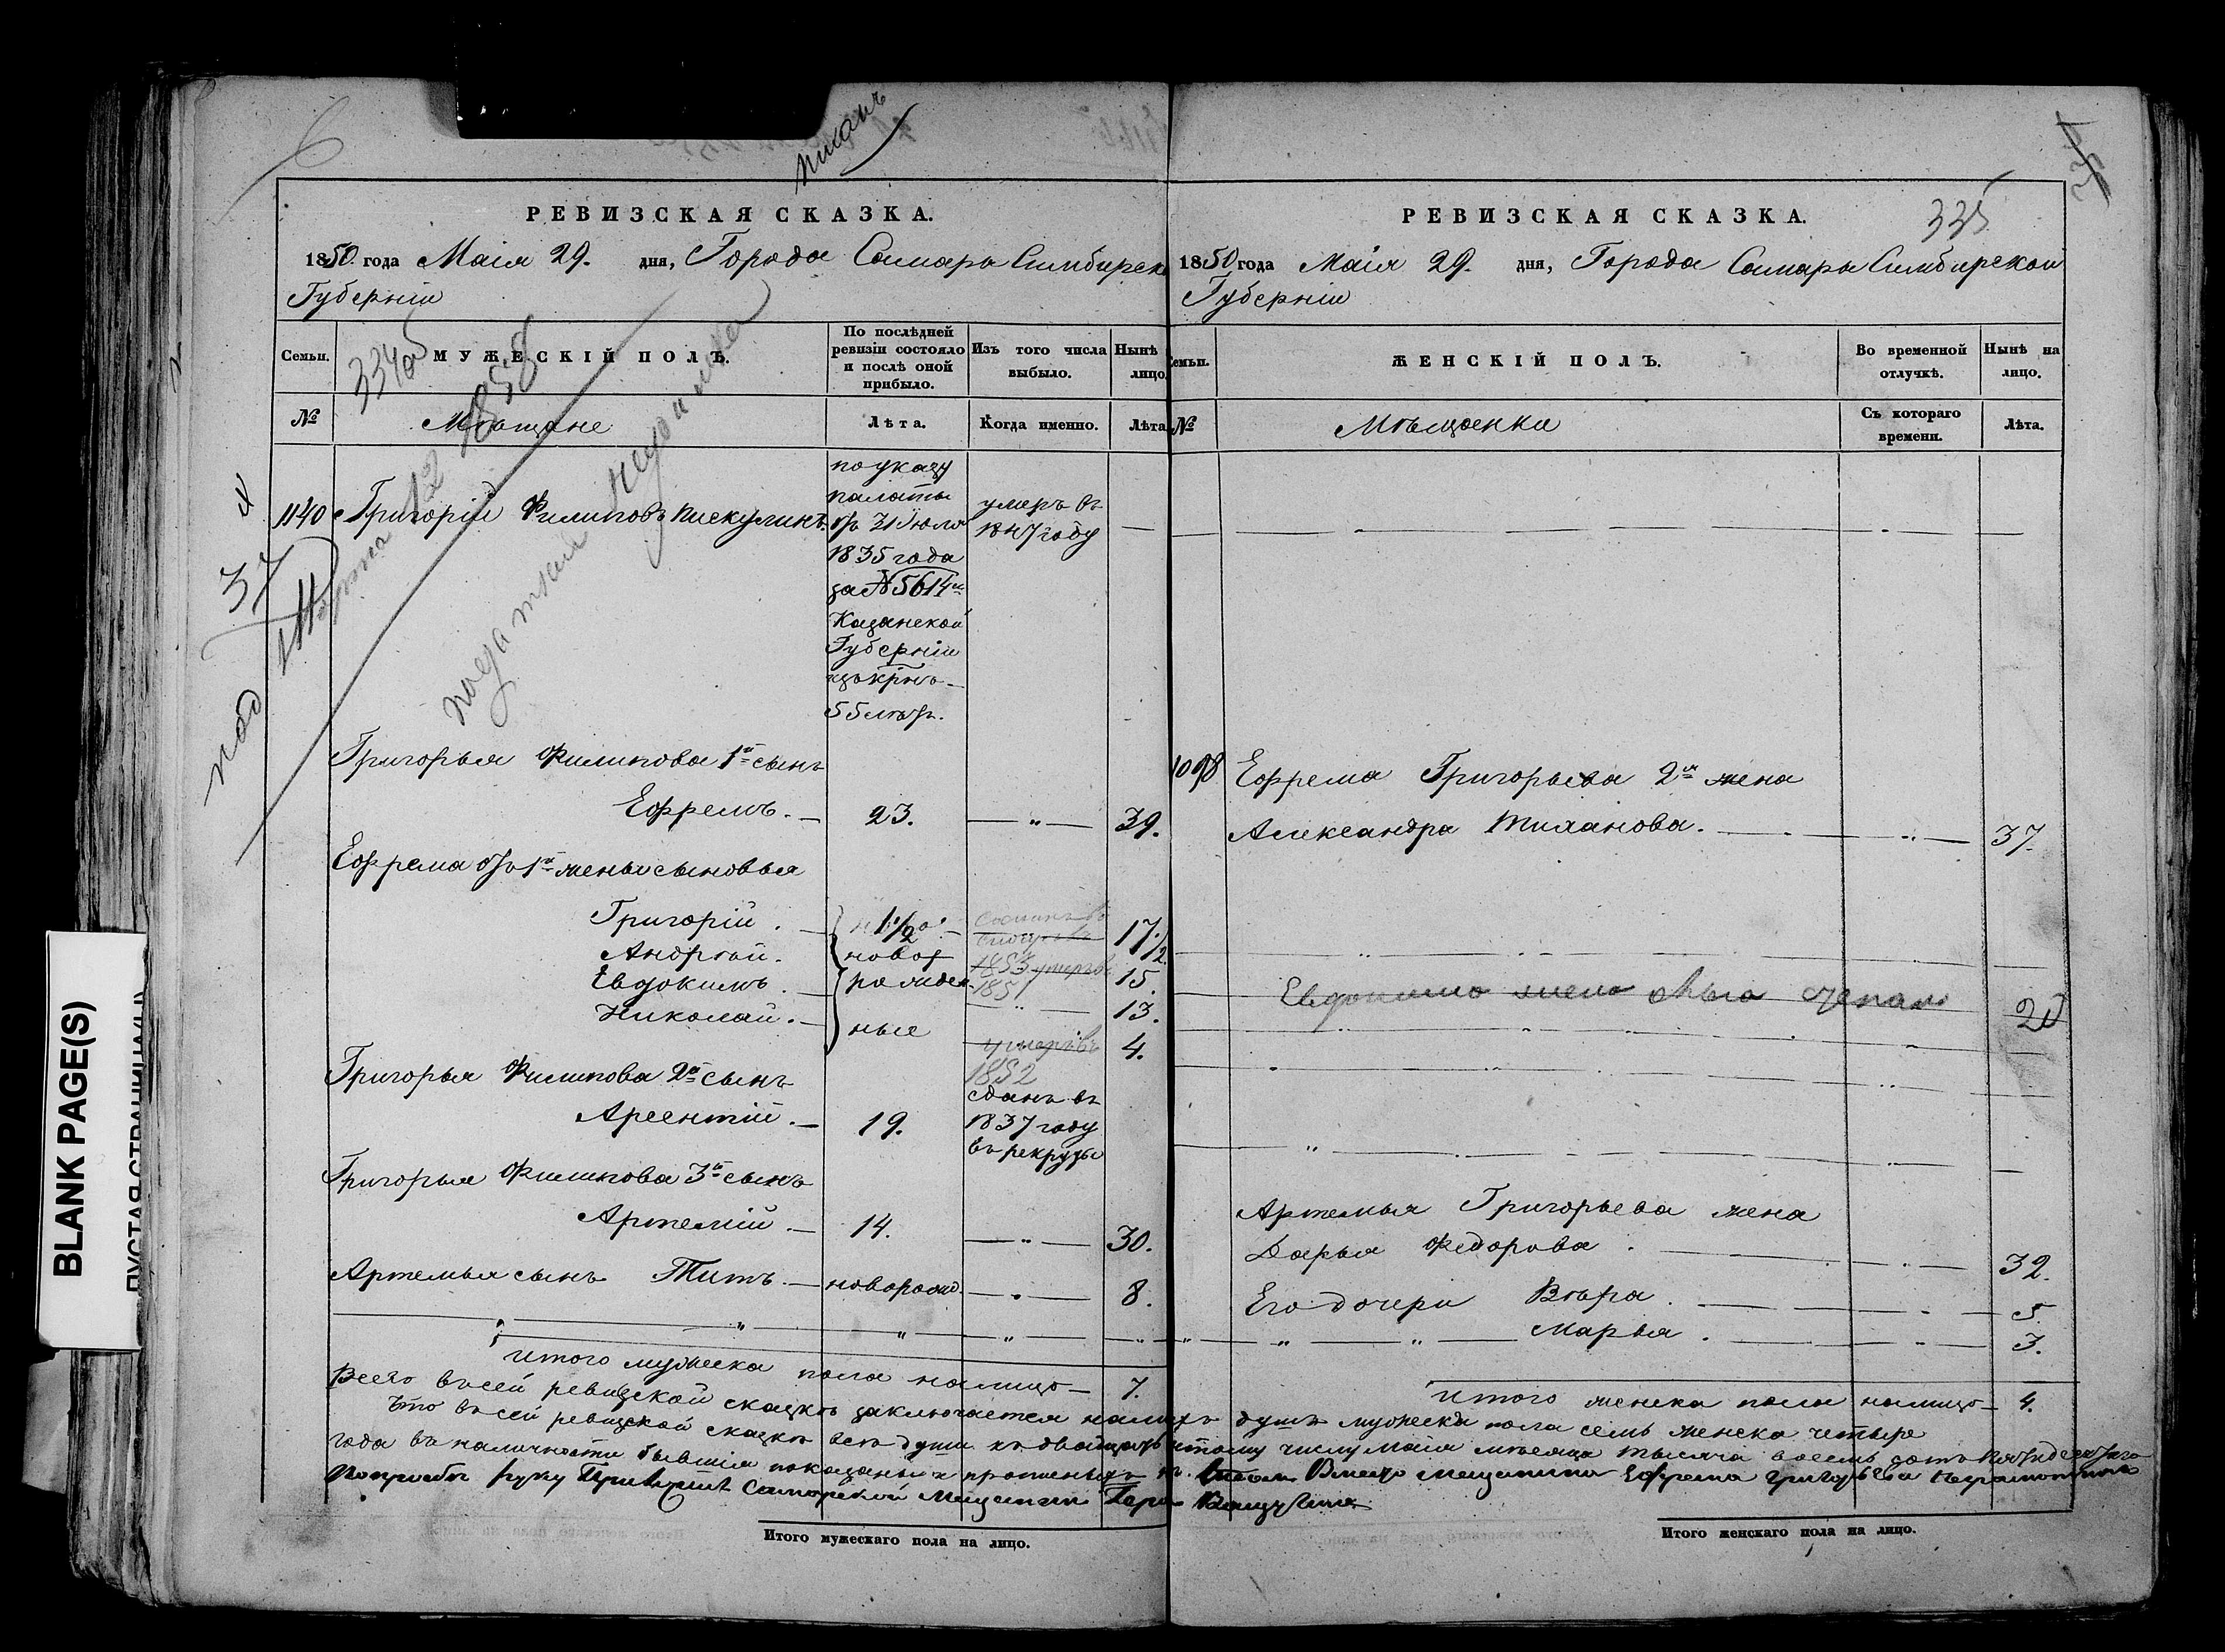 6
писанъ
РЕВИЗСКАЯ СКАЗКА.
1850 года Маія 29. дня, Города Самары Симбирско
Губерніи
334об
Семьи. МУЖЕСКІЙ ПОЛЪ. По послѣдней ревизіи состояло и послѣ оной прибыло. Изъ того числа выбыло. Нынѣ лицо.
№ Мѣщане Лѣта. Когда именно. Лѣта
1858
12
Марта
недоимка
37
под
1140 Григорій Филиповъ Пискулинъ.
по указу
палаты
отъ 31 Іюля
1835 года
за № 5614м
Казанской
Губерніи
55 лѣтъ.
умеръ въ
1847 году
Григорья Филипова 1й сынъ
Ефремъ. 23. — " — 39.
Ефрема отъ 1й жены сыновья
Григорій. 1 1/2 17 1/2
Андрей. новоя 1853 умеръ 15.
Евдокимъ. рожден 1851 13.
Николай. ные умеръ въ 4.
1852
Григорья Филипова 2й сынъ
Арсентій. 19. сданъ въ
1837 году
въ рекруты
Григорья Филипова 3й сынъ
Артемій 14. — " — 30.
Артемья сынъ Титъ. новорожд. — " — 8.
Итого мужеска пола налицо 7.
335
РЕВИЗСКАЯ СКАЗКА.
1850 года Маія 29. дня, Города Самары Симбирской
Губерніи
Семьи. ЖЕНСКІЙ ПОЛЪ. Во временной отлучкѣ. Нынѣ на лицо.
№ Мѣщенки Съ котораго времени. Лѣта.
1098 Ефрема Григорьева 2я жена
Александра Тиханова. 37.
Евдокима жена 20
Артемья Григорьева жена
Дарья Федорова. 32.
Его дочери Вѣра. 5.
Марья. 3.
Итого женска пола налицо 4.
Всего въ сей ревизской сказкѣ заключается налицо душъ мужеска пола семь женска четыре
Что въ сей ревизской сказкѣ всѣ души къ двадцать числу Маія мѣсяца тысяча восемь сотъ пятидесятаго
года въ наличности бывшія показаны и прописныхъ нѣтъ Вмѣсто мещанина Ефрема Григорьева неграмотнаго
по просьбѣ руку Приложилъ Самарской Мещанинъ
Итого мужескаго пола на лицо.
Итого женскаго пола на лицо.
BLANK PAGE(S)
ПУСТАЯ СТРАНИЦА(Ы)